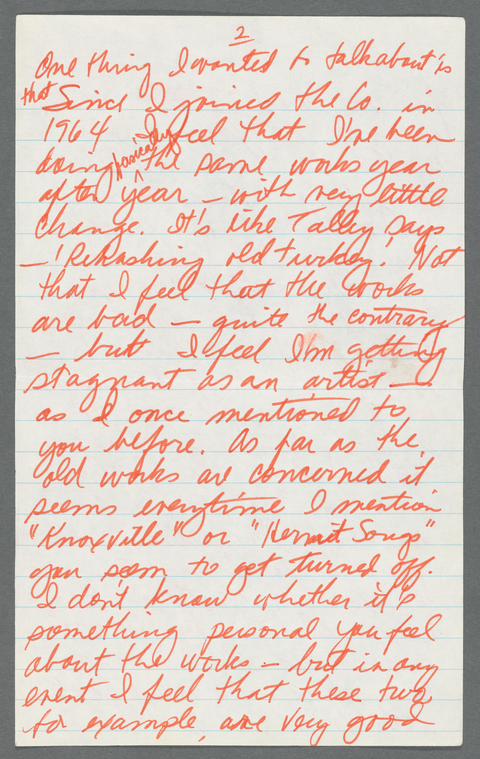 2
One thing I wanted to talk about is
that Since I joined the Co. in
1964 I feel that I've been
doing basically the same works year
after year – with very little
change. It's like Talley says
– 'Rehashing old turkey.' Not
that I feel that the works
are bad – quite the contrary
– but I feel I'm getting
stagnant as an artist –
as I once mentioned to
you before. As far as the
old works are concerned it
seems everytime I mention
"Knoxville" or "Hermit Songs"
you seem to get turned off.
I don't know whether it's
something personal you feel
about the works – but in any
event I feel that these two,
for example, are very good